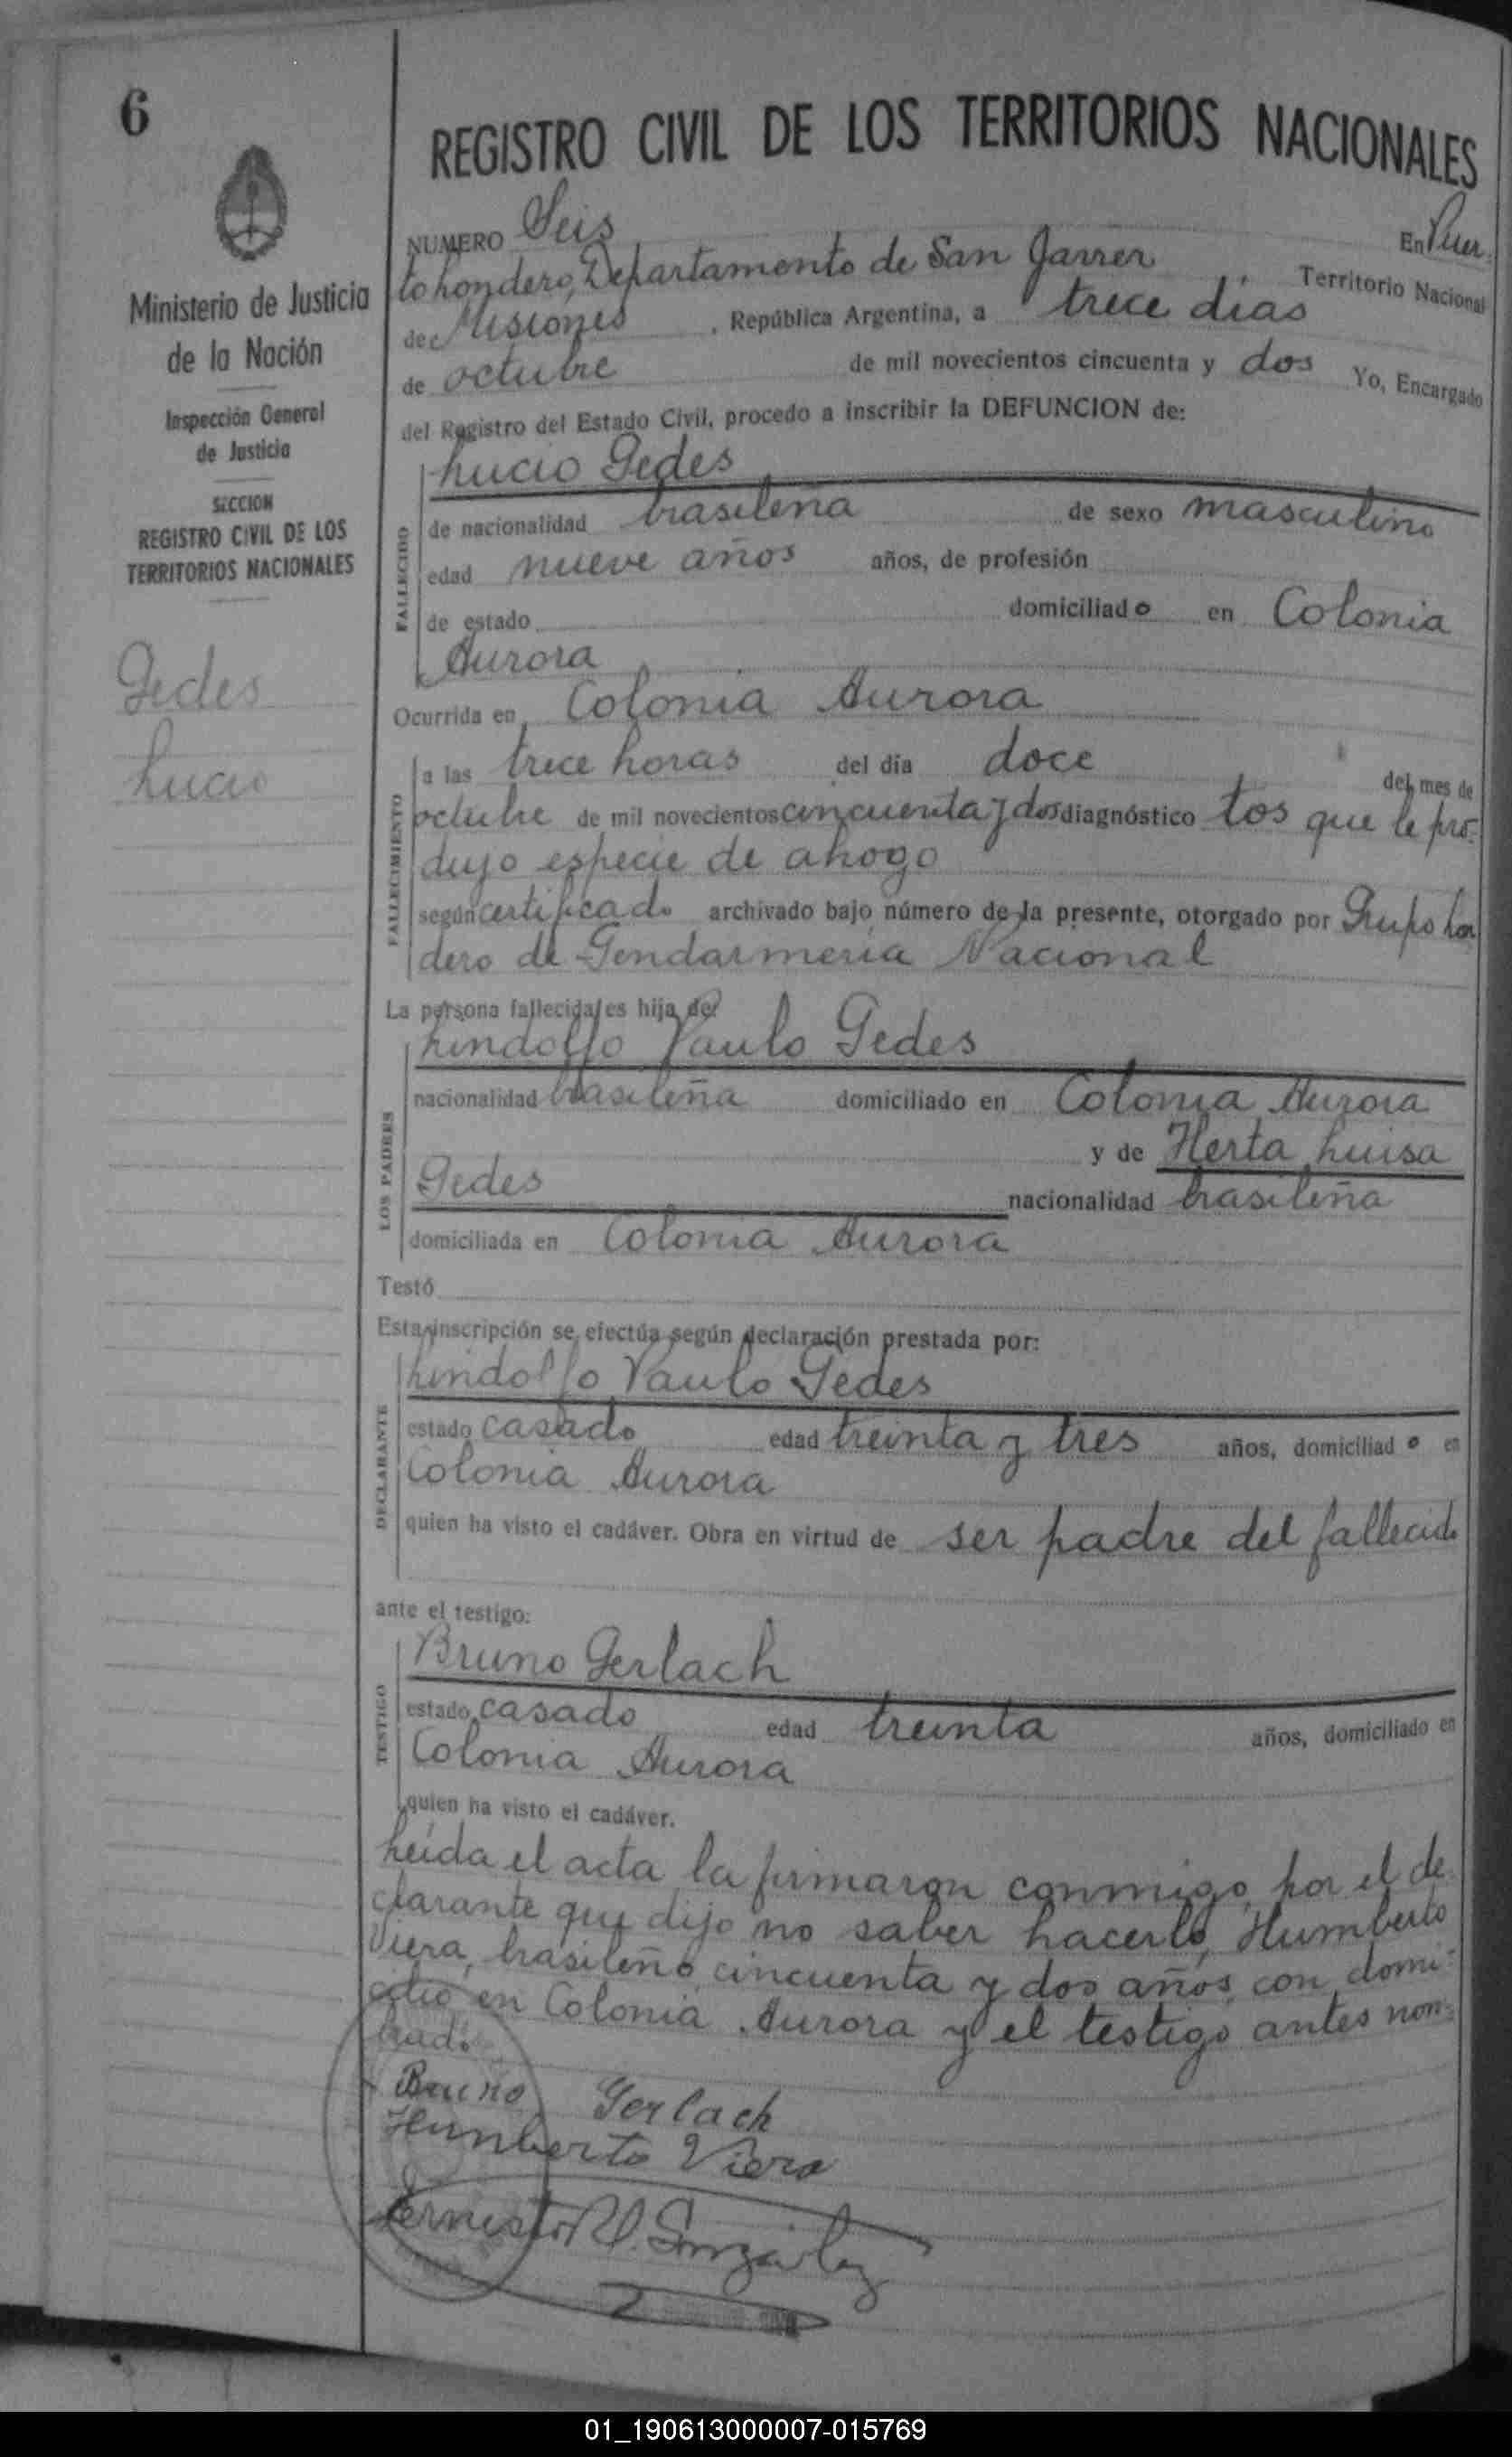 6
REGISTRO CIVIL DE LOS TERRITORIOS NACIONALES
Ministerio de Justicia
de la Nación
Inspección General
de Justicia
SECCION
REGISTRO CIVIL DE LOS
TERRITORIOS NACIONALES
Gedes
Lucio
NUMERO Seis En Puer
to Londero, Departamento de San Javier, Territorio Nacional
de Misiones, República Argentina, a trece días
de octubre de mil novecientos cincuenta y dos Yo, Encargado
del Registro del Estado Civil, procedo a inscribir la DEFUNCION de:
FALLECIDO
Lucio Gedes
de nacionalidad brasileña de sexo masculino
edad nueve años años, de profesión
de estado domiciliado en Colonia
Aurora
Ocurrida en Colonia Aurora
FALLECIMIENTO
a las trece horas del día doce del mes de
octubre de mil novecientos cincuenta y dos diagnóstico tos que le pro-
dujo especie de ahogo
según certificado archivado bajo número de la presente, otorgado por Grupo Lon
dero de Gendarmeria Nacional
La persona fallecida es hija de
LOS PADRES
Lindolfo Paulo Gedes
nacionalidad brasileña domiciliado en Colonia Aurora
y de Herta Luisa
Gedes nacionalidad brasileña
domiciliada en Colonia Aurora
Testó
Esta inscripción se efectúa según declaración prestada por:
DECLARANTE
Lindolfo Paulo Gedes
estado casado edad treinta y tres años, domiciliado en
Colonia Aurora
quien ha visto el cadáver. Obra en virtud de ser padre del fallecido
ante el testigo:
TESTIGO
Bruno Gerlach
estado casado edad treinta años, domiciliado en
Colonia Aurora
quien ha visto el cadáver.
Leída el acta la firmaron conmigo, por el de
clarante que dijo no saber hacerlo, Humberto
Viera, brasileño, cincuenta y dos años, con domi-
cilio en Colonia Aurora y el testigo antes nom-
brado
Bruno Gerlach
Humberto Viera
Ernesto R. González
01_190613000007-015769